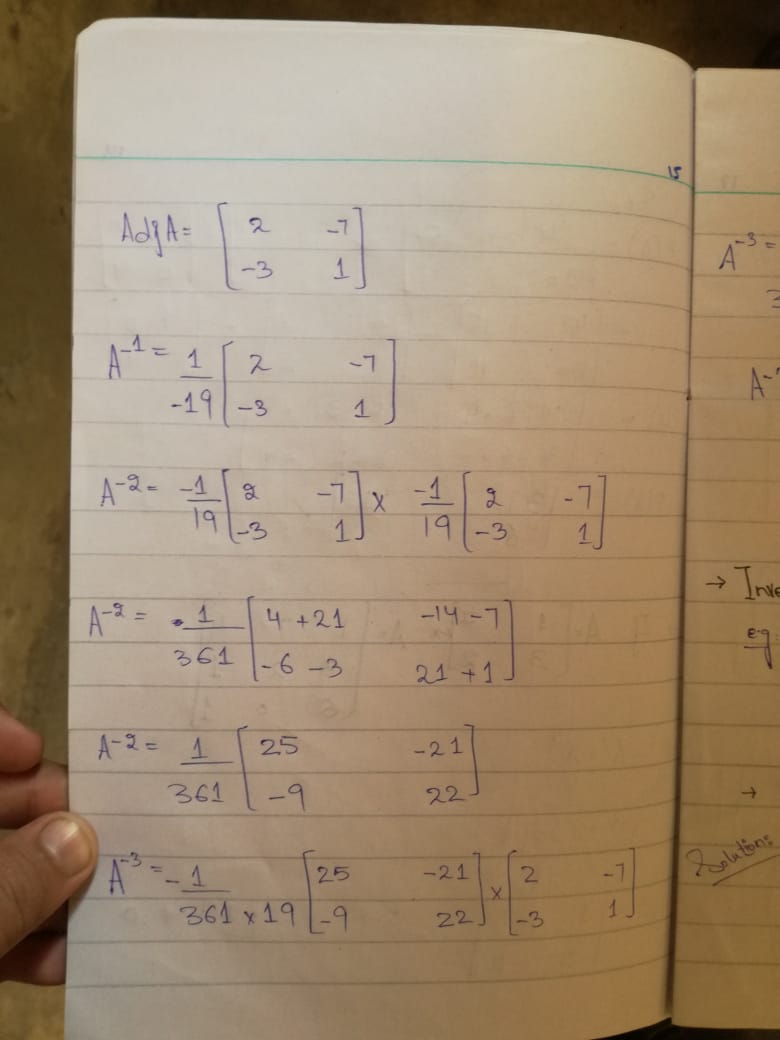 15
AdjA = [2 -7
-3 1]
A⁻¹ = 1/-19 [2 -7
-3 1]
A⁻² = -1/19 [2 -7
-3 1] × -1/19 [2 -7
-3 1]
A⁻² = 1/361 [4 +21 -14 -7
-6 -3 21 +1]
A⁻² = 1/361 [25 -21
-9 22]
A⁻³ = -1/361 × 19 [25 -21
-9 22] × [2 -7
-3 1]
A⁻³ =
3
A⁻
→ Inve
eg
→
Solution: